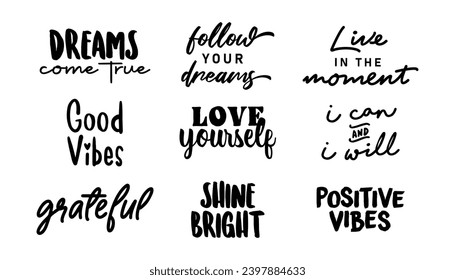 DREAMS
come True
follow
YOUR
dreams
Live
IN THE
moment
Good
Vibes
LOVE
yourself
i can
AND
i will
grateful
SHINE
BRIGHT
POSITIVE
VIBES
shutterstock
IMAGE ID: 2397884633
www.shutterstock.com